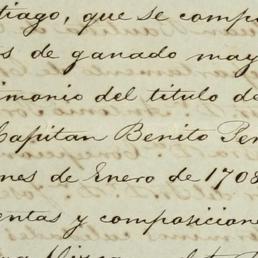 tiago, que se compo
s de ganado may
imonio del titulo de
Capitan Benito Per
nes de Enero de 1708
entas y composicione